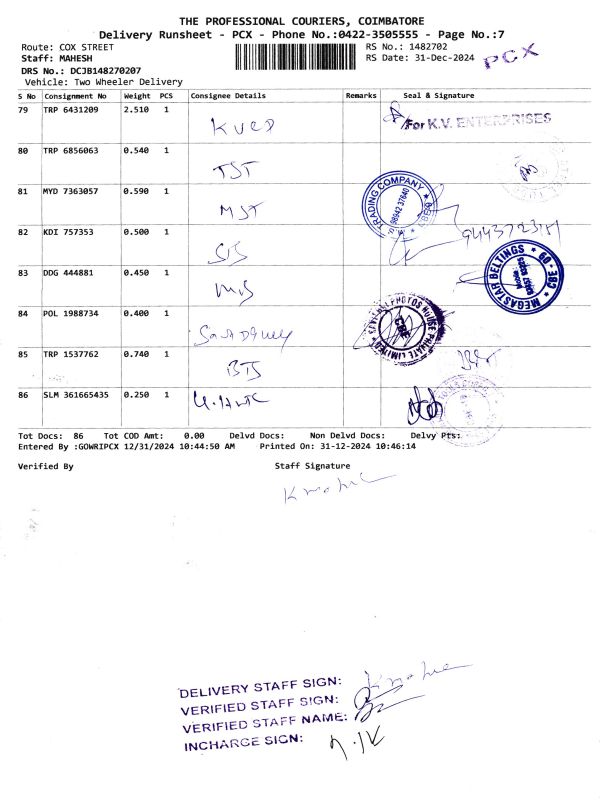 THE PROFESSIONAL COURIERS, COIMBATORE
Delivery Runsheet - PCX - Phone No.:0422-3505555 - Page No.:7
Route: COX STREET
RS No.: 1482702
Staff: MAHESH
RS Date: 31-Dec-2024
PCX
DRS No.: DCJB148270207
Vehicle: Two Wheeler Delivery
S No Consignment No Weight PCS Consignee Details Remarks Seal & Signature
79 TRP 6431209 2.510 1 For K.V. ENTERPRISES
80 TRP 6856063 0.540 1 TST
81 MYD 7363057 0.590 1 MST TRADING COMPANY
82 KDI 757353 0.500 1 SIS
MEGASTAR BELTINGS CBE
83 DDG 444881 0.450 1
84 POL 1988734 0.400 1 PHOTOS HOUSE PRIVATE LIMITED CBE
85 TRP 1537762 0.740 1 BTS
86 SLM 361665435 0.250 1
Tot Docs: 86 Tot COD Amt: 0.00 Delvd Docs: Non Delvd Docs: Delvy Pts:
Entered By :GOWRIPCX 12/31/2024 10:44:50 AM Printed On: 31-12-2024 10:46:14
Verified By Staff Signature
DELIVERY STAFF SIGN:
VERIFIED STAFF SIGN:
VERIFIED STAFF NAME:
INCHARGE SIGN: